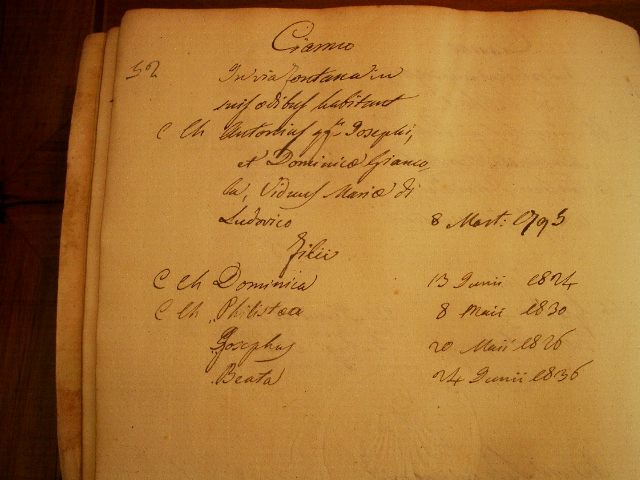 Ciamei
52 In via fontana in
suis ædibus habitant
C Ch Antonius qqm Josephi,
et Dominicæ Gianco,
la, Viduus Mariæ di
Ludovico 8 Mart: 1793
Filii
C Ch Dominica 13 Junii 1824
C Ch Philistæa 8 Maii 1830
Josephus 20 Maii 1826
Beata 24 Junii 1836